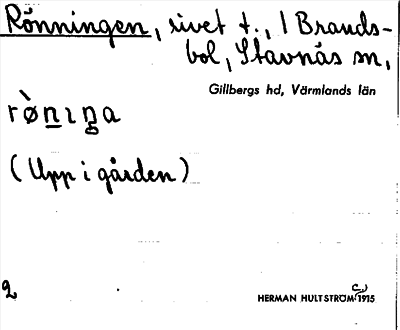 Rönningen, rivet t., 1 Brands-
bol, Stavnäs sn,
Gillbergs hd, Värmlands län
(Upp i gården)
2
HERMAN HULTSTRÖM 1915